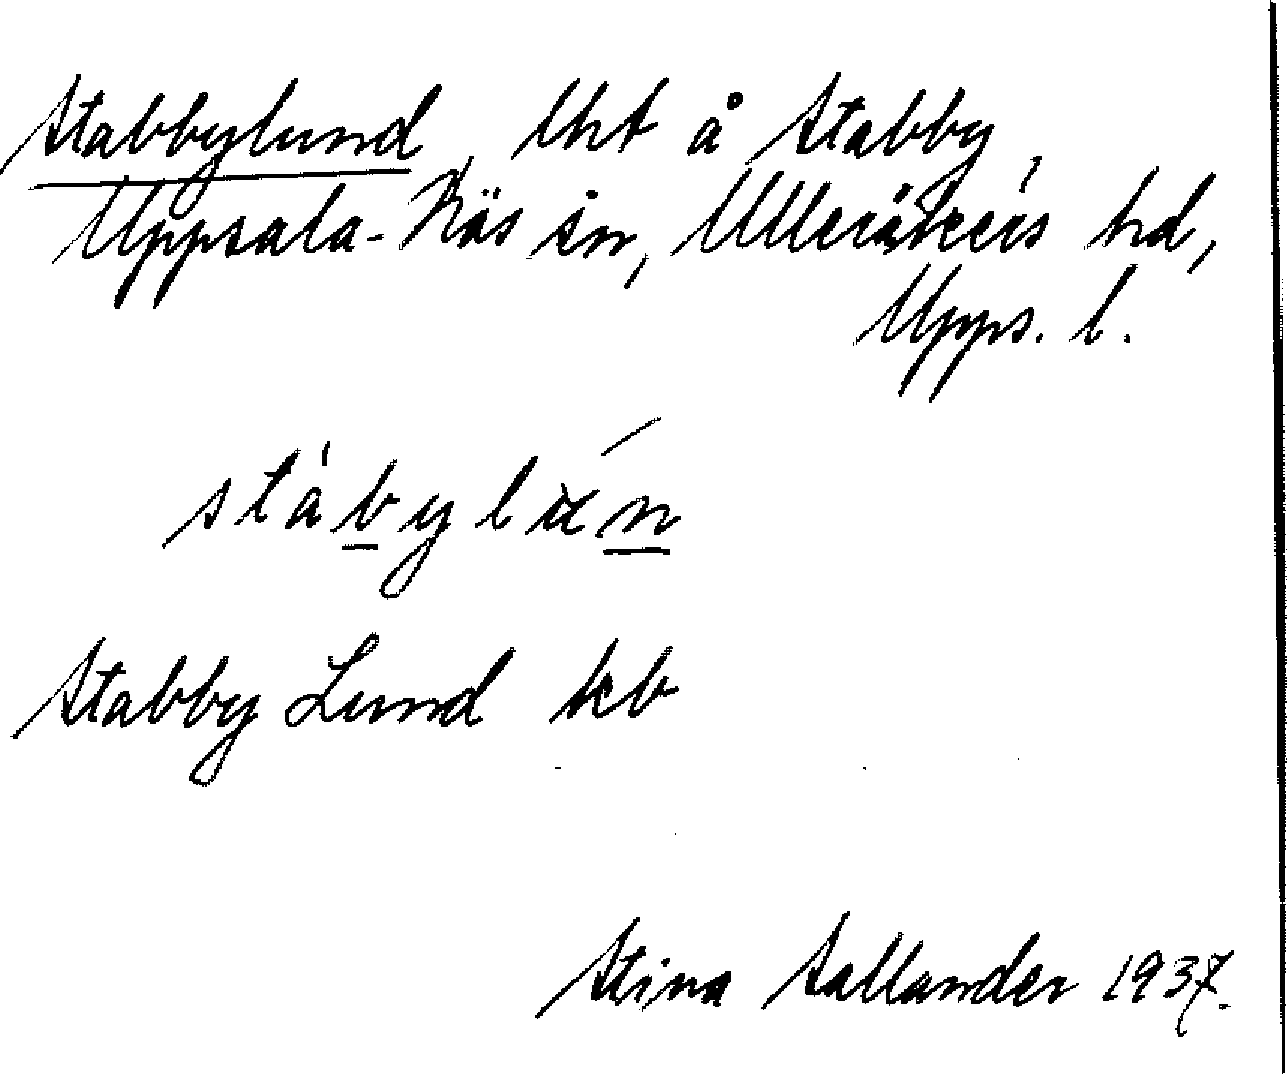 Stabbylund, lht å Stabby,
Uppsala-Näs sn, Ulleråkers hd,
Upps. l.
stábylún
Stabby Lund kb
Stina Sallander 1937.